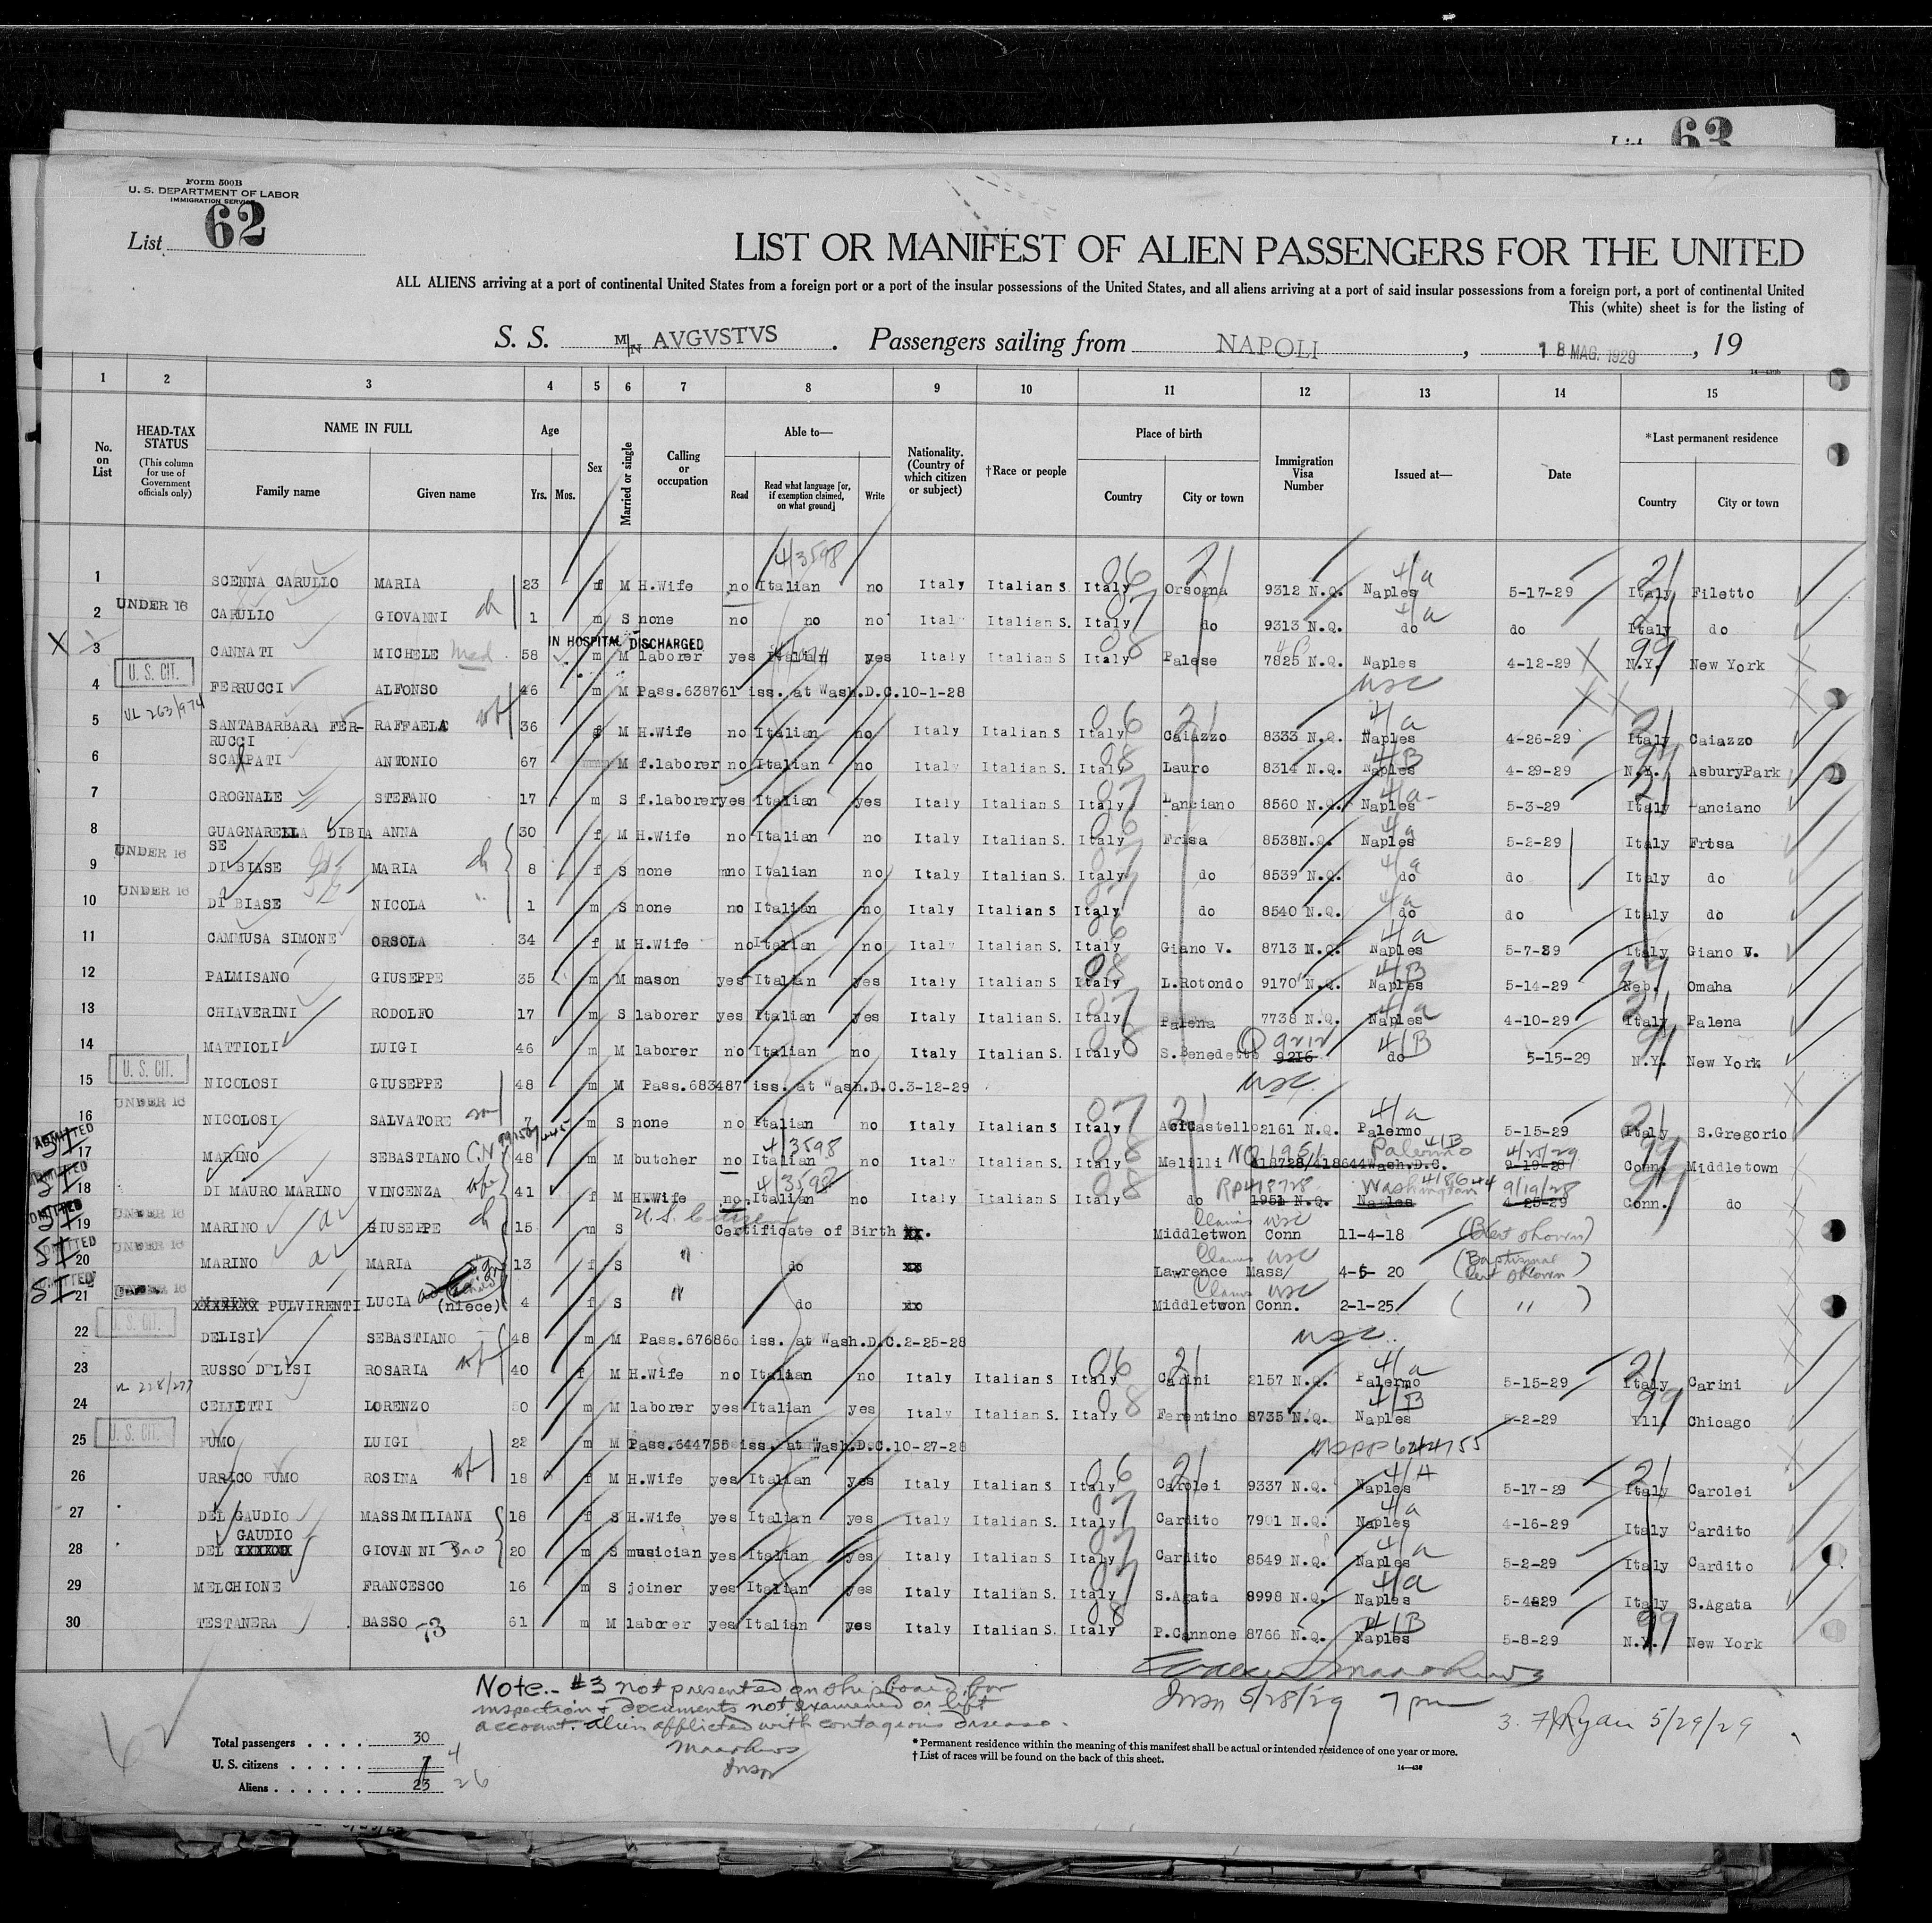 List 63
Form 500B
U. S. DEPARTMENT OF LABOR
IMMIGRATION SERVICE
List 62
LIST OR MANIFEST OF ALIEN PASSENGERS FOR THE UNITED
ALL ALIENS arriving at a port of continental United States from a foreign port or a port of the insular possessions of the United States, and all aliens arriving at a port of said insular possessions from a foreign port, a port of continental United
This (white) sheet is for the listing of
S. S. M/N AVGVSTVS . Passengers sailing from NAPOLI , 18 MAG. 1929 , 19
1 2 3 4 5 6 7 8 9 10 11 12 13 14 15
No. on List
HEAD-TAX STATUS (This column for use of Government officials only)
NAME IN FULL Family name Given name
Age Yrs. Mos.
Sex
Married or single
Calling or occupation
Able to— Read Read what language [or, if exemption claimed, on what ground] Write
Nationality. (Country of which citizen or subject)
†Race or people
Place of birth Country City or town
Immigration Visa Number
Issued at—
Date
*Last permanent residence Country City or town
4/3598
1 SCENNA CARULLO MARIA 23 f M H.Wife no Italian no Italy Italian S Italy 06 Orsogna 21 9312 N.Q. Naples 4/a 5-17-29 Italy 21 Filetto
2 UNDER 16 CARULLO GIOVANNI ch 1 m S none no no no Italy Italian S. Italy 07 do 9313 N.Q. do 4/a do Italy do
IN HOSPITAL DISCHARGED
X 3 CANNATI MICHELE Med 58 m M laborer yes Italian yes Italy Italian S Italy 08 Palese 7825 N.Q. Naples 4-12-29 N.Y. 99 New York
4 U. S. CIT. FERRUCCI ALFONSO 46 m M Pass.638761 iss. at Wash.D.C.10-1-28 USC
VL 263/974
5 SANTABARBARA FER-RUCCI RAFFAELA wf 36 f M H.Wife no Italian no Italy Italian S Italy 06 Caiazzo 21 8333 N.Q. Naples 4/a 4-26-29 Italy 21 Caiazzo
6 SCARPATI ANTONIO 67 M f.laborer no Italian no Italy Italian S. Italy 08 Lauro 8314 N.Q. Naples 4/B 4-29-29 N.Y. AsburyPark
7 CROGNALE STEFANO 17 m S f.laborer yes Italian yes Italy Italian S. Italy 07 Lanciano 8560 N.Q. Naples 4/a 5-3-29 Italy 21 Lanciano
8 GUAGNARELLA DIBIA SE ANNA 30 f M H.Wife no Italian no Italy Italian S. Italy 06 Frisa 8538N.Q. Naples 4/a 5-2-29 Italy Frisa
9 UNDER 16 DI BIASE MARIA ch 8 f S none no Italian no Italy Italian S. Italy 07 do 8539 N.Q. do 4/a do Italy do
10 UNDER 16 DI BIASE NICOLA " 1 m S none no Italian no Italy Italian S Italy 07 do 8540 N.Q. do 4/a do Italy do
11 CAMMUSA SIMONE ORSOLA 34 f M H.Wife no Italian no Italy Italian S. Italy 06 Giano V. 8713 N.Q. Naples 4/a 5-7-29 Italy Giano V.
12 PALMISANO GIUSEPPE 35 m M mason yes Italian yes Italy Italian S Italy 08 L.Rotondo 9170 N.Q. Naples 4/B 5-14-29 Neb. 99 Omaha
13 CHIAVERINI RODOLFO 17 m S laborer yes Italian yes Italy Italian S. Italy 07 Palena 7738 N.Q. Naples 4/a 4-10-29 Italy 21 Palena
14 MATTIOLI LUIGI 46 m M laborer no Italian no Italy Italian S. Italy 08 S.Benedetto 9216 9212 do 4/B 5-15-29 N.Y. 99 New York
15 U. S. CIT. NICOLOSI GIUSEPPE 48 m M Pass.683487 iss. at Wash.D.C.3-12-29 USC
16 UNDER 16 NICOLOSI SALVATORE son 7 m S none no Italian no Italy Italian S Italy 07 AciCastello 21 2161 N.Q. Palermo 4/a 5-15-29 Italy 21 S.Gregorio
ADMITTED SI 17 MARINO SEBASTIANO 48 m M butcher no Italian 4/3598 no Italy Italian S. Italy 08 Melilli NQ 1951 418728/418644 Wash.D.C. Palermo 4/B 9-19-28 4/25/29 Conn. 99 Middletown
ADMITTED SI 18 DI MAURO MARINO VINCENZA wife 41 f M H.Wife no Italian 4/3598 no Italy Italian S Italy 08 do RP418728 1951 N.Q. Naples Washington 418644 9/19/28 4-25-29 Conn. do
ADMITTED SI 19 UNDER 16 MARINO GIUSEPPE ch 15 m S U.S. Citizen Certificate of Birth xx. Middletwon Conn Claims USC 11-4-18 (Cert shown)
ADMITTED SI 20 UNDER 16 MARINO MARIA 13 f S " do xx Lawrence Mass/ Claims USC 4-5- 20 (Baptismal Cert shown)
ADMITTED SI 21 UNDER 16 XXXXXXX PULVIRENTI LUCIA (niece) 4 f S " do xx Middletwon Conn. Claims USC 2-1-25 ( " )
22 U. S. CIT. DELISI SEBASTIANO 48 m M Pass.676860 iss. at Wash.D.C.2-25-28 USC
23 RUSSO DELISI ROSARIA wf 40 f M H.Wife no Italian no Italy Italian S Italy 06 Carini 21 2157 N.Q. Palermo 4/a 5-15-29 Italy 21 Carini
VL 228/277
24 CELLETTI LORENZO 50 m M laborer yes Italian yes Italy Italian S. Italy 08 Ferentino 8735 N.Q. Naples 4/B 5-2-29 Ill. 99 Chicago
25 U. S. CIT. FUMO LUIGI 22 m M Pass.644755 iss. at Wash.D.C.10-27-28 USPP 644755
26 URRICO FUMO ROSINA wf 18 f M H.Wife yes Italian yes Italy Italian S Italy 06 Carolei 21 9337 N.Q. Naples 4/A 5-17-29 Italy 21 Carolei
27 DEL GAUDIO MASSIMILIANA 18 f S H.Wife yes Italian yes Italy Italian S. Italy 07 Cardito 7901 N.Q. Naples 4/a 4-16-29 Italy Cardito
28 DEL GAUDIO GIOVANNI Bro 20 m S musician yes Italian yes Italy Italian S. Italy 07 Cardito 8549 N.Q. Naples 4/a 5-2-29 Italy Cardito
29 MELCHIONE FRANCESCO 16 m S joiner yes Italian yes Italy Italian S. Italy 07 S.Agata 8998 N.Q. Naples 4/a 5-4-29 Italy S.Agata
30 TESTANERA BASSO 61 m M laborer yes Italian yes Italy Italian S. Italy 08 P.Cannone 8766 N.Q. Naples 4/B 5-8-29 N.Y. 99 New York
Note.- #3 not presented on shipboard for
inspection & documents not examined or lift
account. alien afflicted with contagious disease.
Matthews
Insp
Matthews
Insp 5/28/29 7 pm
3. Ryan 5/29/29
62
Total passengers . . . . 30
U. S. citizens . . . . . 7 4
Aliens . . . . . . 23 26
* Permanent residence within the meaning of this manifest shall be actual or intended residence of one year or more.
† List of races will be found on the back of this sheet.
14—430